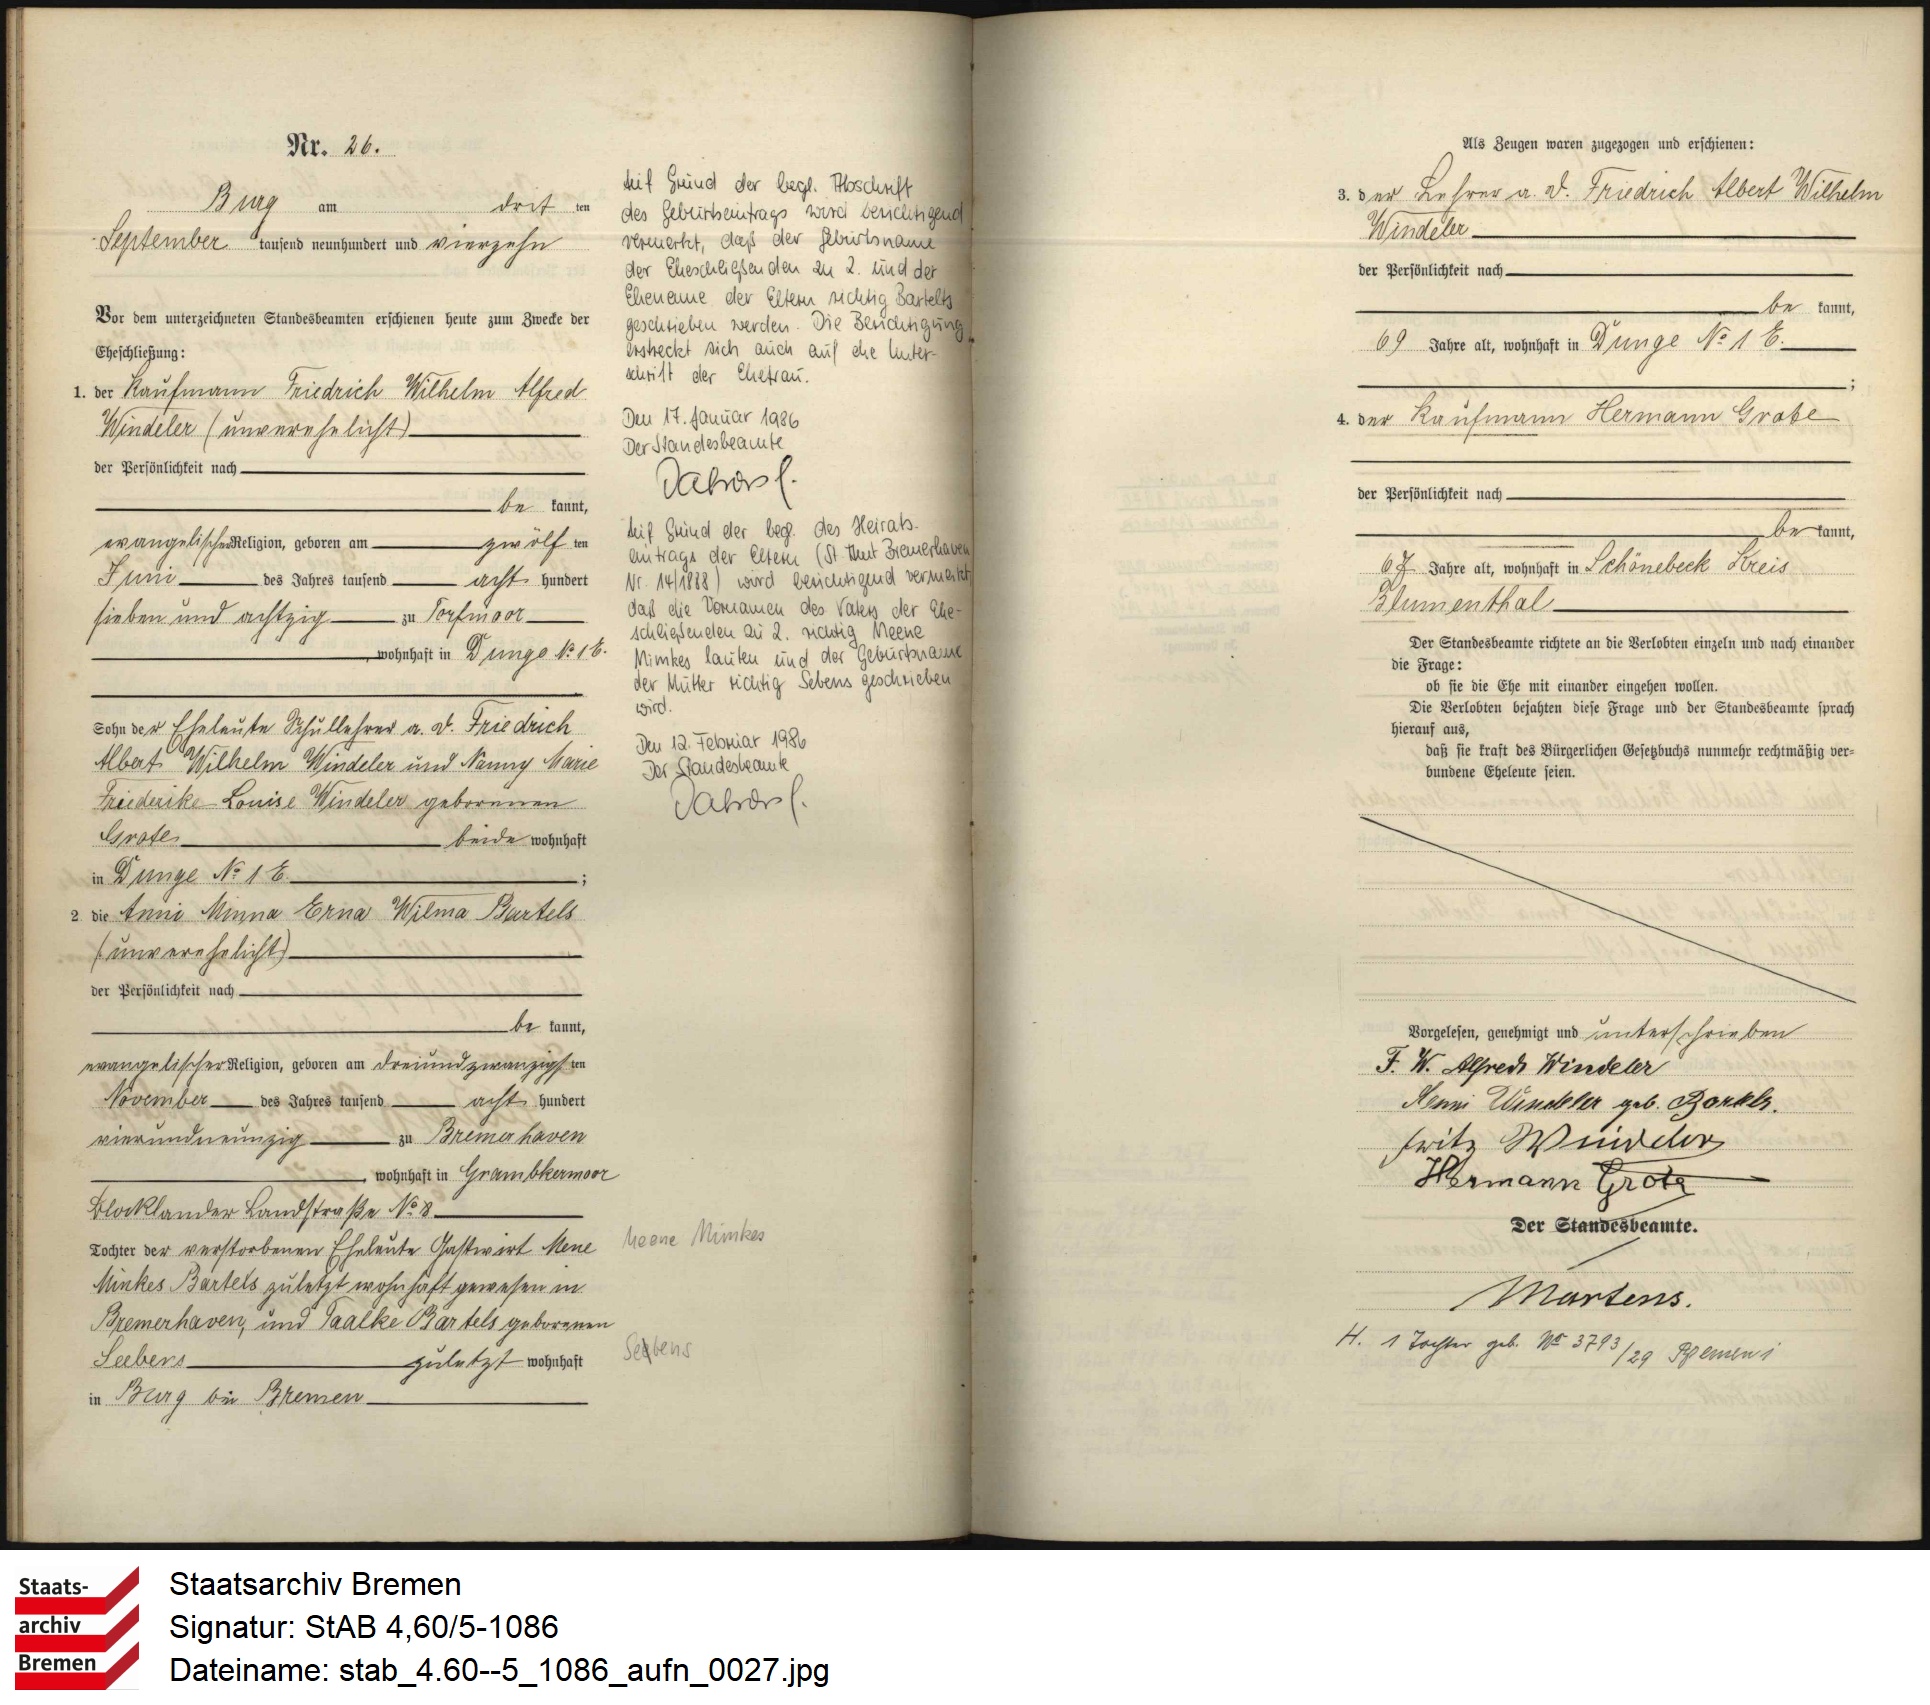 Nr. 26.
Burg am dritten
September tausend neunhundert und vierzehn
Vor dem unterzeichneten Standesbeamten erschienen heute zum Zwecke der
Eheschließung:
1. der Kaufmann Friedrich Wilhelm Alfred
Windeler (unverehelicht)
der Persönlichkeit nach
be kannt,
evangelischer Religion, geboren am zwölf ten
Juni des Jahres tausend acht hundert
sieben und achtzig zu Torfmoor
, wohnhaft in Dunge No 1 E.
Sohn der Eheleute Schullehrer a. D. Friedrich
Albert Wilhelm Windeler und Nanny Marie
Friederike Louise Windeler geborenen
Grote beide wohnhaft
in Dunge No 1 E. ;
2 die Anni Minna Erna Wilma Bartels
(unverehelicht)
der Persönlichkeit nach
be kannt,
evangelischer Religion, geboren am dreiundzwanzigsten
November des Jahres tausend acht hundert
vierundneunzig zu Bremerhaven
, wohnhaft in Grambkermoor
Blocklander Landstraße No 8
Tochter der verstorbenen Eheleute Gastwirt Mene
Minkes Bartels zuletzt wohnhaft gewesen in
Bremerhaven, und Taalke Bartels geborenen
Seebens zuletzt wohnhaft
in Burg bei Bremen
Auf Grund der begl. Abschrift
des Geburtseintrags wird berichtigend
vermerkt, daß der Geburtsname
der Eheschließenden zu 2. und der
Ehename der Eltern richtig Bartelts
geschrieben werden. Die Berichtigung
erstreckt sich auch auf die Unter-
schrift der Ehefrau.
Den 17. Januar 1986
Der Standesbeamte
Auf Grund der begl. des Heirats-
eintrags der Eltern (St. Amt Bremerhaven
Nr. 14/1888) wird berichtigend vermerkt
daß die Vornamen des Vaters der Ehe-
schließenden zu 2. richtig Meene
Mimkes lauten und der Geburtsname
der Mutter richtig Sebens geschrieben
wird.
Den 12. Februar 1986
Der Standesbeamte
Meene Mimkes
Sebens
Als Zeugen waren zugezogen und erschienen:
3. der Lehrer a. D. Friedrich Albert Wilhelm
Windeler
der Persönlichkeit nach
be kannt,
69 Jahre alt, wohnhaft in Dunge No 1 E.
;
4. der Kaufmann Hermann Grote
der Persönlichkeit nach
be kannt,
67 Jahre alt, wohnhaft in Schönebeck Kreis
Blumenthal
Der Standesbeamte richtete an die Verlobten einzeln und nach einander
die Frage:
ob sie die Ehe mit einander eingehen wollen.
Die Verlobten bejahten diese Frage und der Standesbeamte sprach
hierauf aus,
daß sie kraft des Bürgerlichen Gesetzbuchs nunmehr rechtmäßig ver-
bundene Eheleute seien.
Vorgelesen, genehmigt und unterschrieben
F. W. Alfred Windeler
Anni Windeler geb. Bartels.
Fritz Windeler
Hermann Grote
Der Standesbeamte.
Martens.
H. 1 Tochter geb. No 3793/29 Bremen I
Staats-
archiv
Bremen
Staatsarchiv Bremen
Signatur: StAB 4,60/5-1086
Dateiname: stab_4.60--5_1086_aufn_0027.jpg